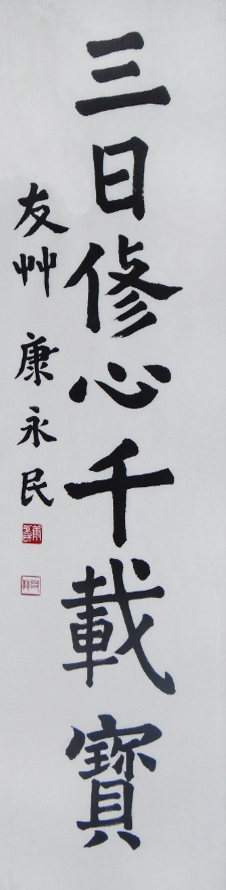 三日修心千載寶
友艸 康永民